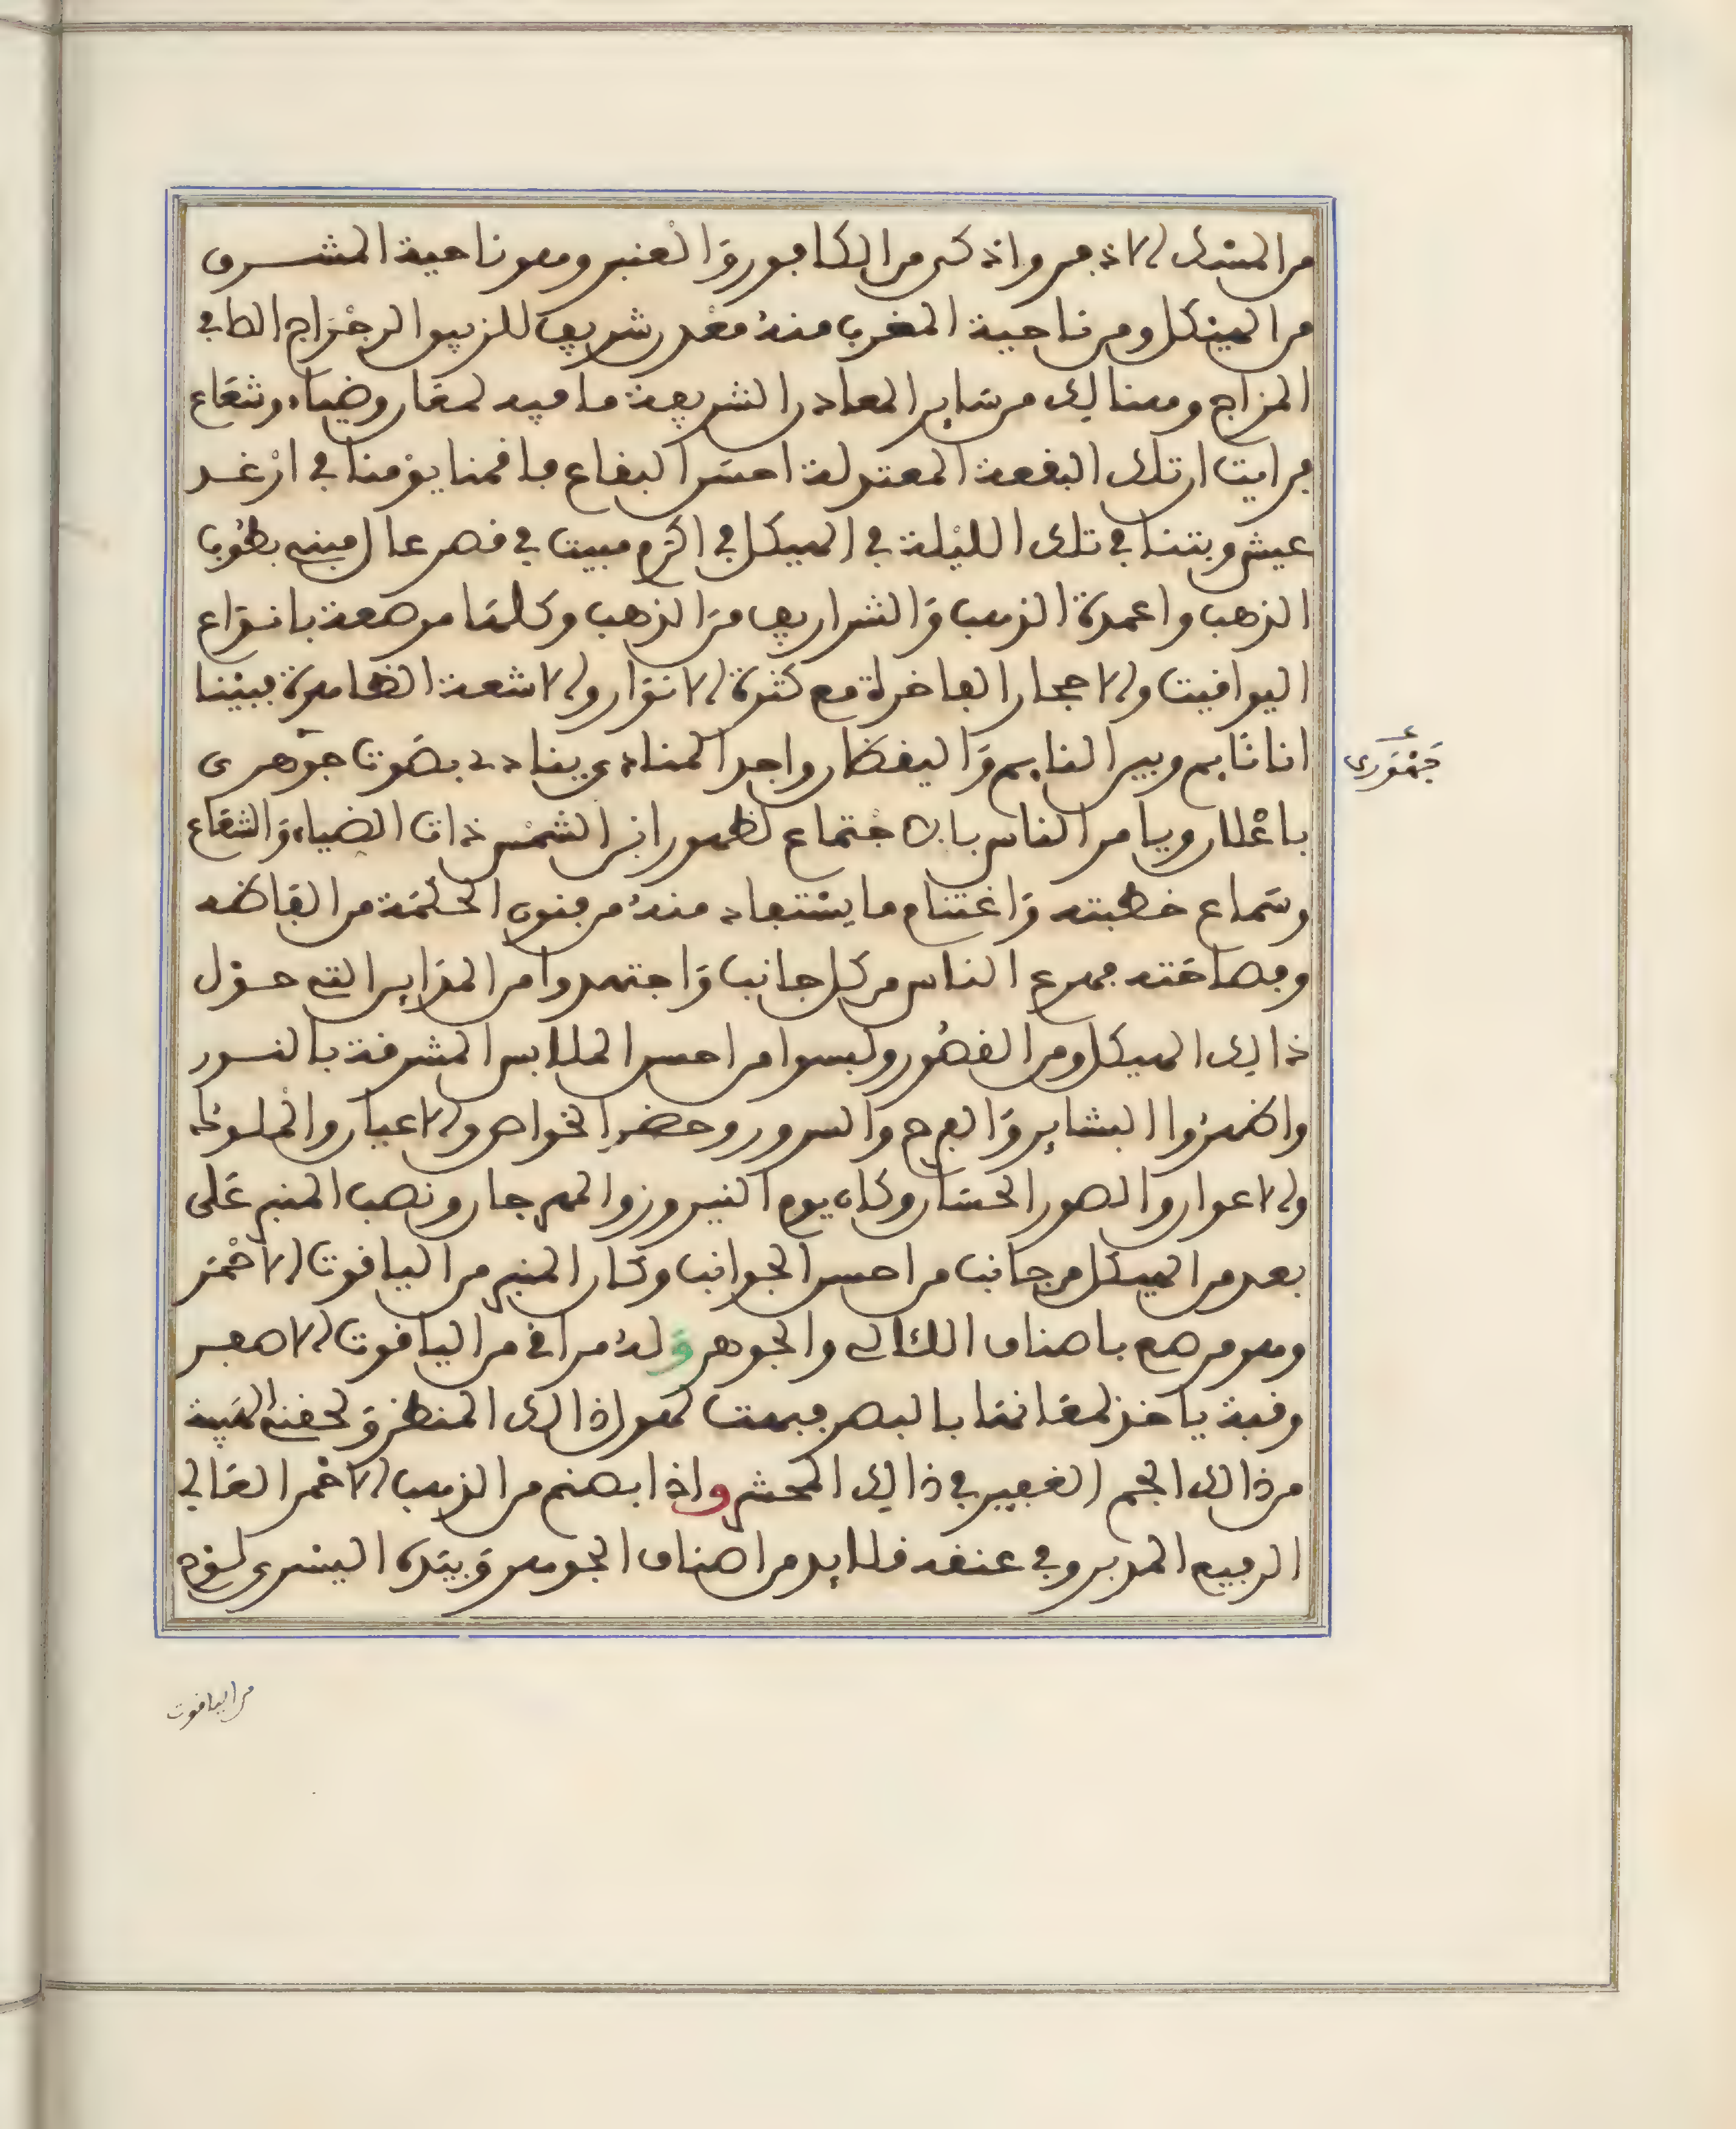 من المسْك الاذفر واذكى من الكافور وَالْعنبر وهو ناحية المشــرق
من الهيْكل ومن ناحية المغرب منهُ مَعْدن شريف للزيبق الرجْرَاج الطافي
المزاج وهنالك من سَاير المعادن الشريفة ما فيه لمعَان وضياء وشعَاع
فرايت ان تلك البقعة المعتدلة احسَن البقاع فاقمنا يوْمنا في ارْغـد
عيش وبتنا في تلك الليْلة في الهيكل في اكرَم مبيت في قصر عال مبني بطُوب
الذهب واعمدة الذهب وَالشراريف منَ الذهب وكلهَا مرصعة بانـوَاع
اليواقيت والاحجار الفاخرة مع كثرة الانوَار والاشعة الظاهرة فبيْنا
انا نَايم وبين النايم وَاليقظان واجد المنادي ينادي بصَوت جوْهري
جَهْوَري
باعْلان ويامر الناس بالاجْتماع لظهور ابن الشمْس ذات الضياء وَالشعَاع
وسَماع خطبته وَاغتنام ما يسْتفاد منهُ من فنون الحكْمَة من الفَاظه
وفصاحَته فهرع الناس من كل جانب وَاجتهدوا من المدَاين التي حـوْل
ذالك الهيكل ومن القصُور ولبسوا من احسن الملابس المشرقة بالنــور
واظهرُوا البشاير وَالفرح والسرور وحضر الخواص والاعيان والملـوك
والاعوان والصور الحسَان وكان يوم النيروز والمهرجان ونصب المنبر عَلى
بعد من الهيكل من جانب من احسن الجوانب وكَان المنبر من الياقوت الاحْمَر
وهو مرصع باصناف اللئالي والجوهر وَلهُ مراقي من الياقوت الاصفـر
وقبة ياخذ لمعَانهَا بالبصر فبهت لهول ذالك المنظر وَلحقتني الهَيبة
من ذالك الجم الغفير في ذالك المحْشر واذا بصنم من الذهب الاحْمر العَالي
الرفيع المدبر وفي عنقه قلايد من اصناف الجوهر وَبيَده اليسْرى لوْح
من الياقوت